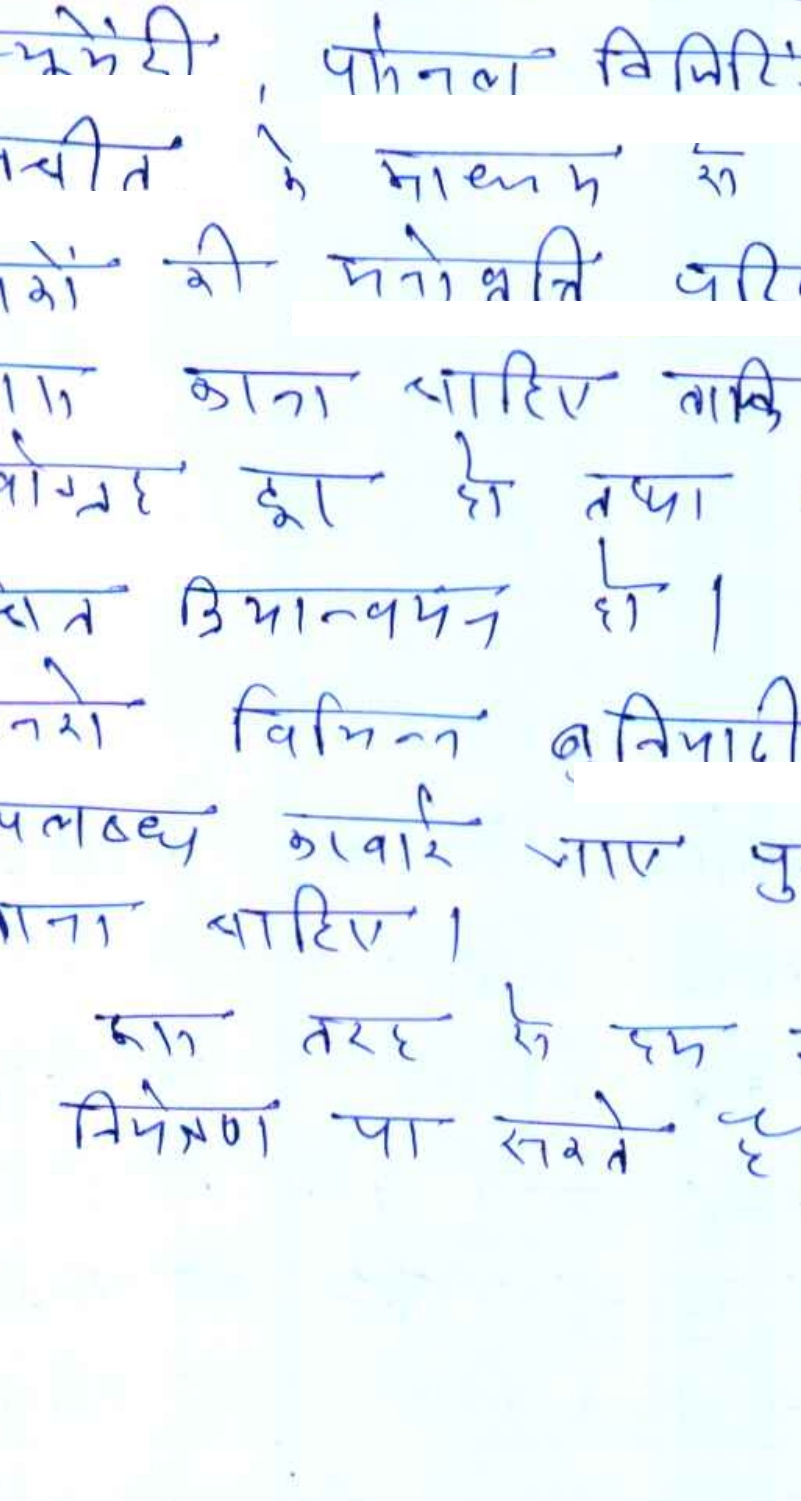 ्यूमेंट्री, पर्सनल विजिटिं
चीत के माध्यम से
रों की मनोवृत्ति परि
करना चाहिए ताकि
र्वाग्रह दूर हो तथा
क्रियान्वयन हो।
नको विभिन्न बुनियादी
पलब्ध करवाई जाए पु
ाना चाहिए।
इस तरह से हम
नियंत्रण पा सकते हैं